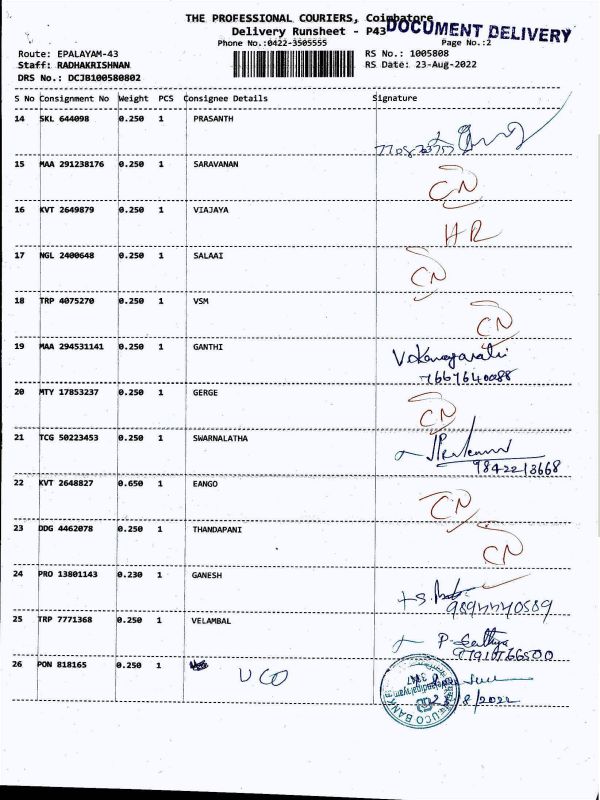 THE PROFESSIONAL COURIERS, Coimbatore
Delivery Runsheet - P43
DOCUMENT DELIVERY
Phone No.:0422-3505555
Page No.:2
Route: EPALAYAM-43
RS No.: 1005808
Staff: RADHAKRISHNAN
RS Date: 23-Aug-2022
DRS No.: DCJB100580802
S No Consignment No Weight PCS Consignee Details Signature
14 SKL 644098 0.250 1 PRASANTH
15 MAA 291238176 0.250 1 SARAVANAN CN
16 KVT 2649879 0.250 1 VIAJAYA HR
17 NGL 2400648 0.250 1 SALAAI CN
18 TRP 4075270 0.250 1 VSM CN
19 MAA 294531141 0.250 1 GANTHI
7667640088
20 MTY 17853237 0.250 1 GERGE CN
21 TCG 50223453 0.250 1 SWARNALATHA
9842213668
22 KVT 2648827 0.650 1 EANGO CN
23 DDG 4462078 0.250 1 THANDAPANI CN
24 PRO 13801143 0.230 1 GANESH
25 TRP 7771368 0.250 1 VELAMBAL P. Sathya
26 PON 818165 0.250 1 UCO
UCO BANK